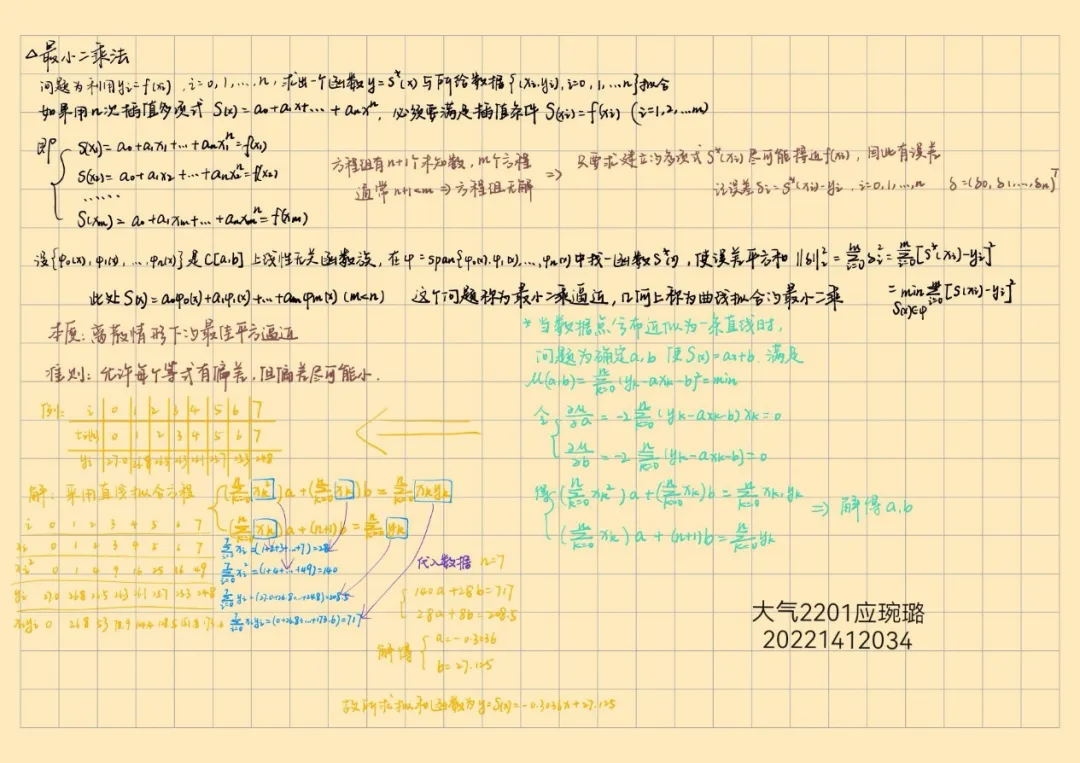 △最小二乘法
问题为利用yi=f(xi), i=0,1,...,n, 求出一个函数y=S*(x)与所给数据{(xi,yi),i=0,1,...n}拟合
如果用n次插值多项式 S(x)=a0+a1x+...+anxⁿ, 必须要满足插值条件 S(xi)=f(xi) (i=1,2,...m)
即 S(x1)=a0+a1x1+...+anx1ⁿ=f(x1)
S(x2)=a0+a1x2+...+anx2ⁿ=f(x2)
......
S(xm)=a0+a1xm+...+anxmⁿ=f(xm)
方程组有n+1个未知数, m个方程
通常n+1<m ⇒ 方程组无解
⇒ 只要求建立的多项式S*(xi)尽可能接近f(xi), 因此有误差
记误差δi=S*(xi)-yi, i=0,1,...,n δ=(δ0,δ1,...,δn)ᵀ
设{φ0(x),φ1(x),...,φn(x)}是C[a,b]上线性无关函数族, 在φ=span{φ0(x),φ1(x),...,φn(x)}中找一函数S*(x), 使误差平方和‖δ‖₂²=∑δi²=∑[S*(xi)-yi]²
=min∑[S(xi)-yi]²
S(x)∈φ
此处 S(x)=a0φ0(x)+a1φ1(x)+...+amφm(x) (m<n) 这个问题称为最小二乘逼近, 几何上称为曲线拟合的最小二乘
本质: 离散情形下的最佳平方逼近
准则: 允许每个等式有偏差, 且偏差尽可能小.
*当数据点分布近似为一条直线时,
问题为确定a,b 使S(x)=ax+b 满足
M(a,b)=∑(yk-axk-b)²=min
令 ∂M/∂a=-2∑(yk-axk-b)xk=0
∂M/∂b=-2∑(yk-axk-b)=0
得 (∑xk²)a+(∑xk)b=∑xkyk
(∑xk)a+(n+1)b=∑yk
⇒ 解得a,b
例: i 0 1 2 3 4 5 6 7
0 1 2 3 4 5 6 7
yi 27.0 26.8 26.5 26.3 26.1 25.7 25.3 24.8
解: 采用直线拟合方程
(∑xk²)a+(∑xk)b=∑xkyk
(∑xk)a+(n+1)b=∑yk
i 0 1 2 3 4 5 6 7
xi 0 1 2 3 4 5 6 7
xi² 0 1 4 9 16 25 36 49
yi 27.0 26.8 26.5 26.3 26.1 25.7 25.3 24.8
xiyi 0 26.8 53 78.9
∑xi=(1+2+3+...+7)=28
∑xi²=(1+4+...+49)=140
∑yi=(27.0+26.8+...+24.8)=208.5
∑xiyi=(0+26.8+...+173.6)=717
代入数据 n=7
140a+28b=717
28a+8b=208.5
解得 a=-0.3036
b=27.125
故所求拟和函数为y=S(x)=-0.3036x+27.125
大气2201应琬璐
20221412034